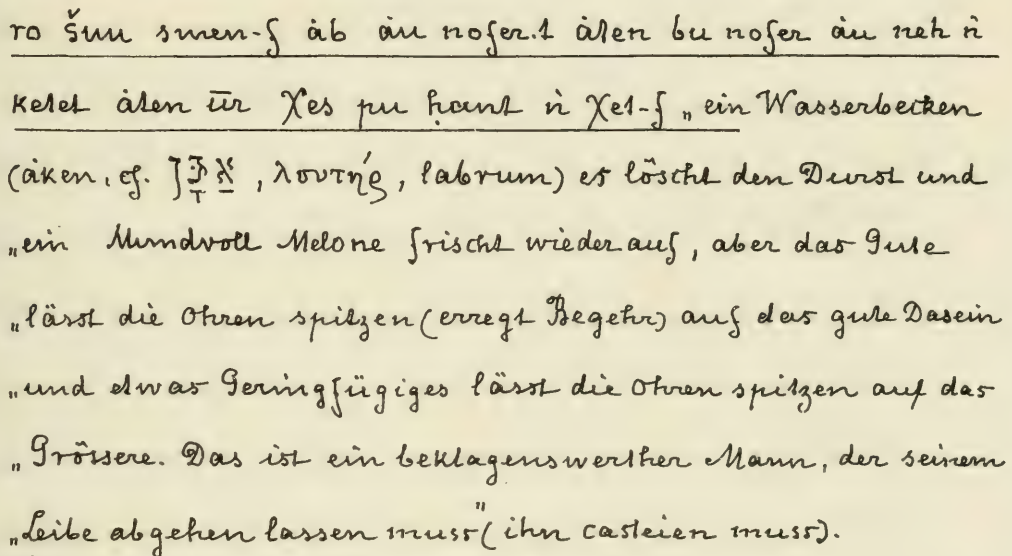 ro šuu smen-f àb àu nofer.t àten bu nofer àu neh ǹ
ketet àten ūr χes pu ḥant ǹ χet-f „ein Wasserbecken
(àken, cf. , λουτής, labrum) es löscht den Durst und
„ein Mundvoll Melone frischt wieder auf, aber das Gute
„lässt die Ohren spitzen (erregt Begehr) auf das gute Dasein
„und etwas Geringfügiges lässt die Ohren spitzen auf das
„Grössere. Das ist ein beklagenswerther Mann, der seinem
„Leibe abgehen lassen muss" (ihn casteien muss).